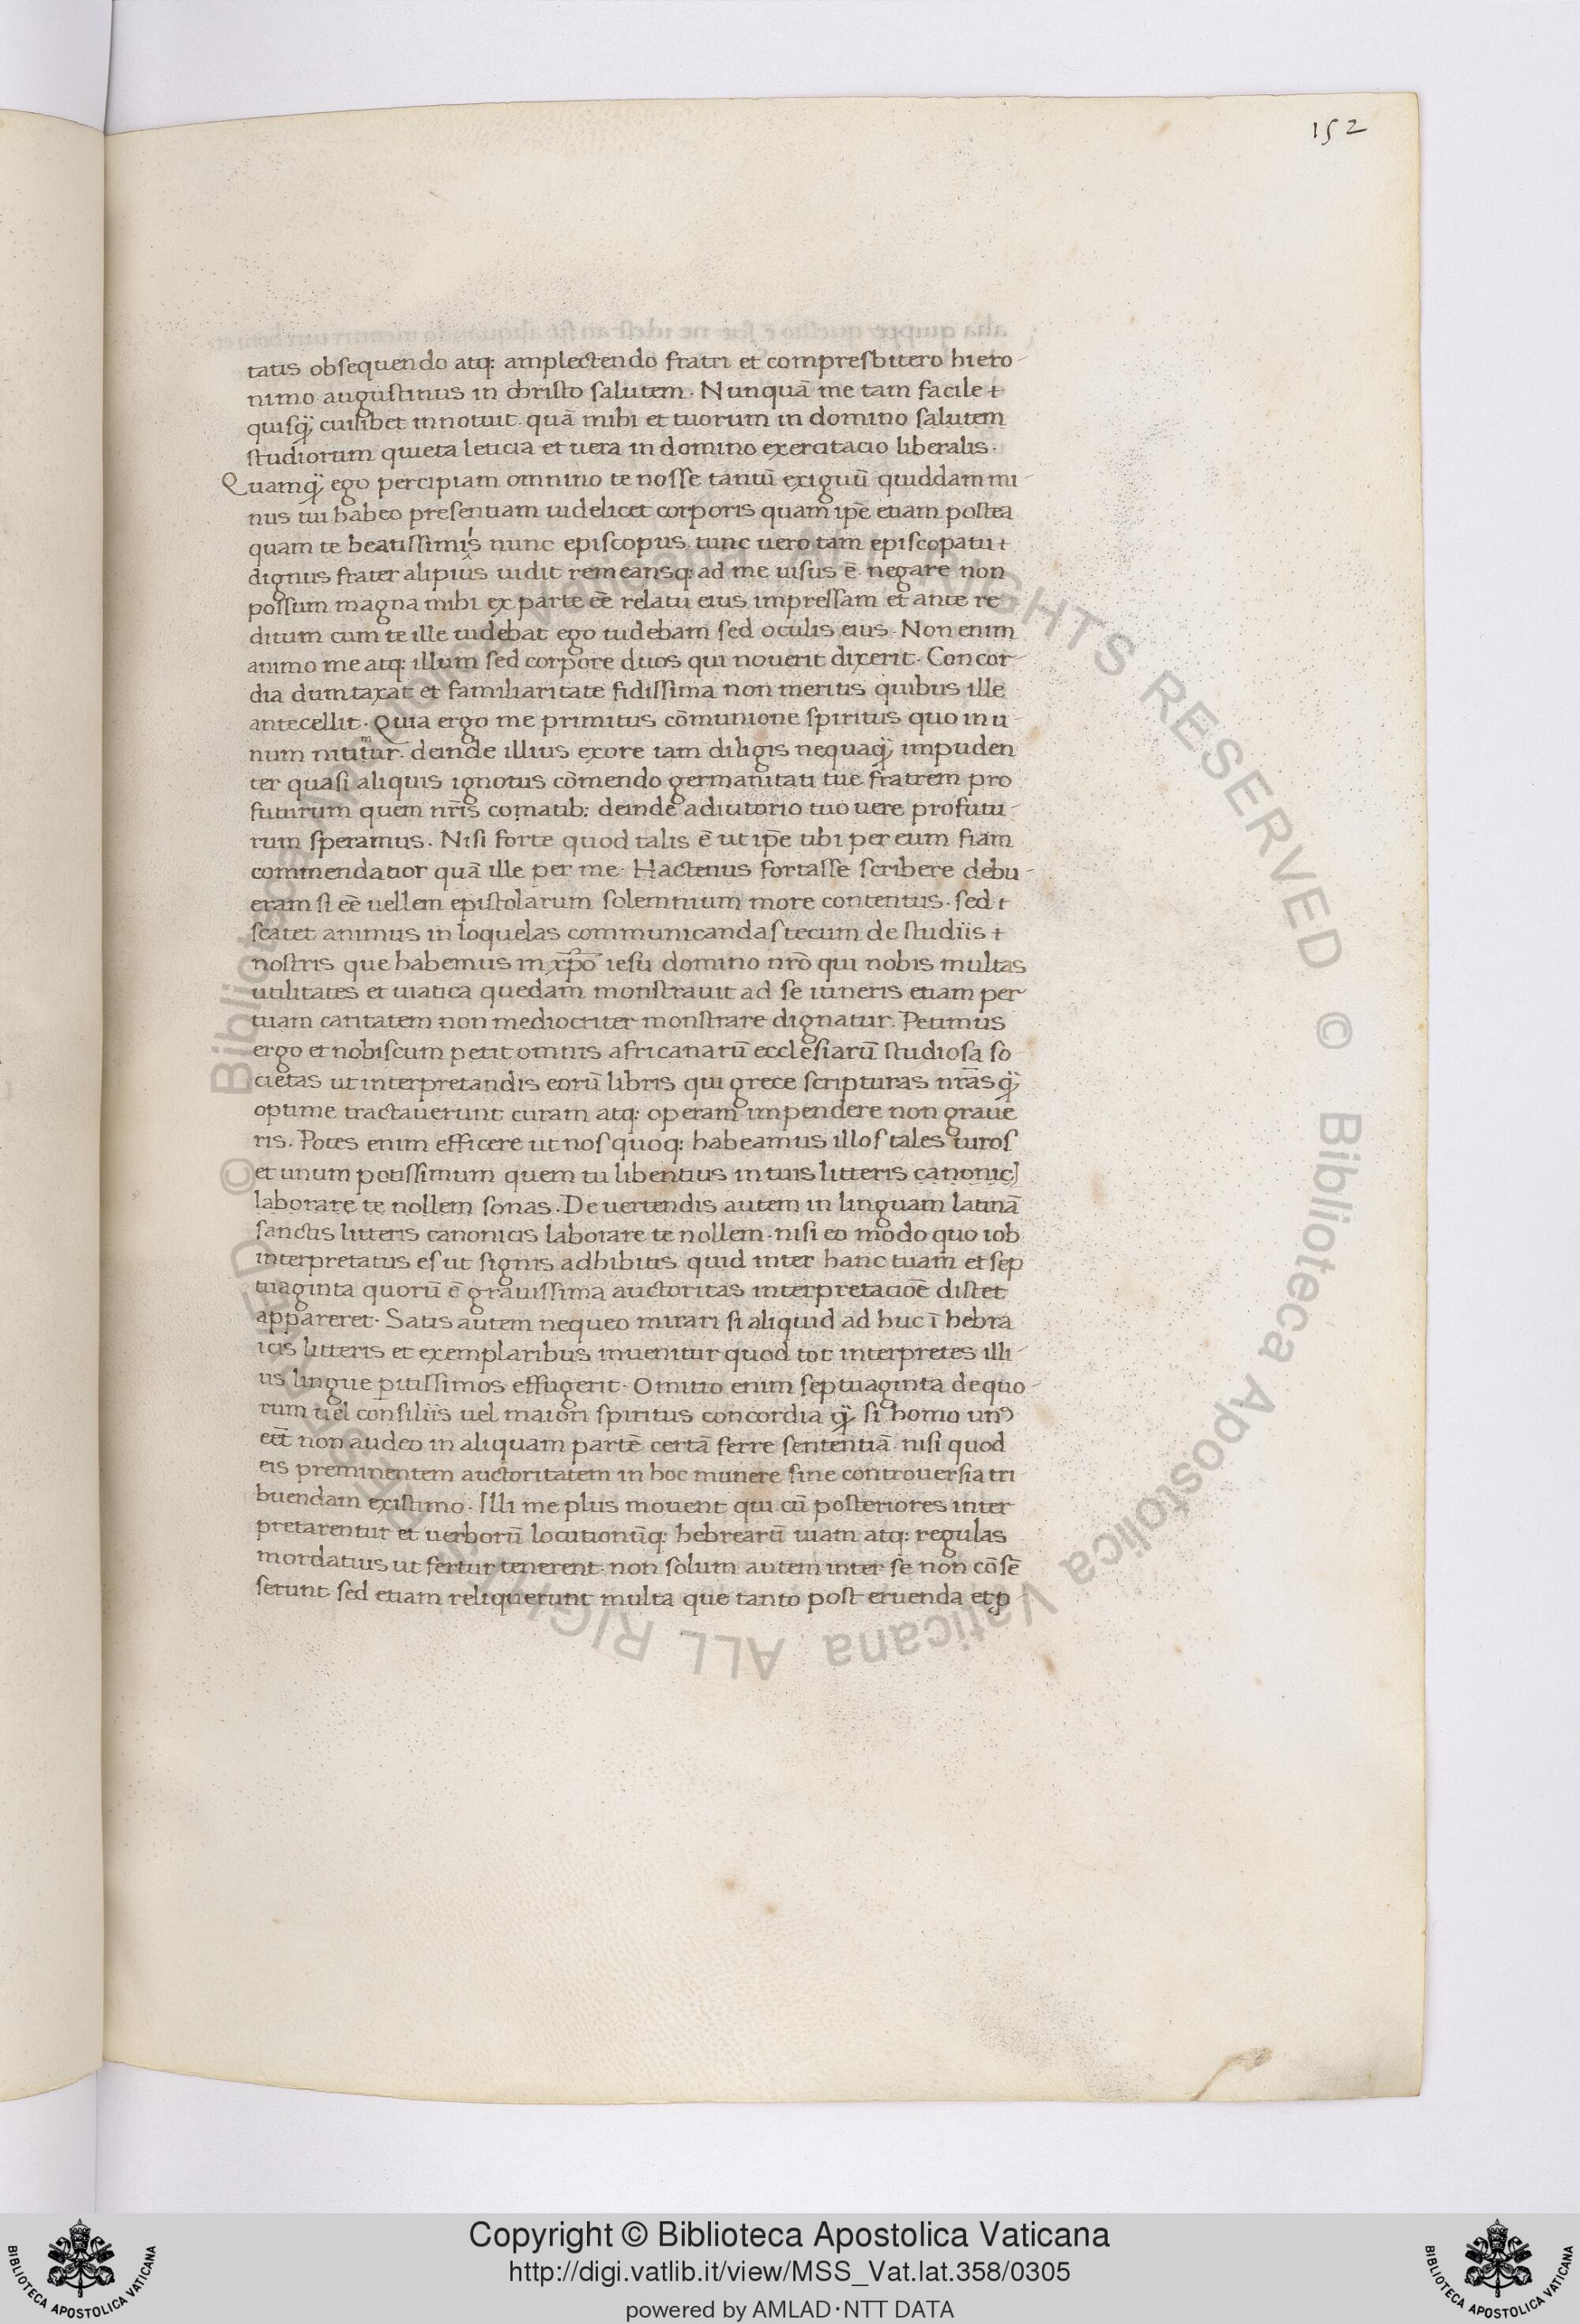 152
tatis obsequendo atq: amplectendo fratri et compresbitero hiero-
nimo augustinus in christo salutem. Nunquā me tam facile +
quisq̃ cuilibet innotuit. quā mihi et tuorum in domino salutem
studiorum quieta leticia et uera in domino exercitacio liberalis.
Quamq̃ ego percipiam omnino te nosse tantū exiguū quiddam mi-
nus tui habeo presentiam uidelicet corporis quam ip̄e etiam postea
quam te beatissimis nunc episcopus. tunc uero tam episcopatu +
dignus frater alipius uidit remeansq: ad me uisus ē negare non
possum magna mihi ex parte eē relatu eius impressam et ante re-
ditum cum te ille uidebat ego uidebam sed oculis eius. Non enim
animo me atq: illum sed corpore duos qui nouerit dixerit. Concor-
dia dumtaxat et familiaritate fidissima non meritis quibus ille
antecellit. Quia ergo me primitus cōmunione spiritus quo in u-
num nitimur. deinde illius exore iam diligis nequaq̃ impuden
ter quasi aliquis ignotus cōmendo germanitati tue fratrem pro
futurum quem nr̄is comatib: deinde adiutorio tuo uere profutu-
rum speramus. Nisi forte quod talis ē ut ip̄e tibi per eum fiam
commendatior quā ille per me. Hactenus fortasse scribere debu-
eram si eē uellem epistolarum solemnium more contentus. sed +
scatet animus in loquelas communicandas tecum de studiis +
nostris que habemus in xp̄o iesu domino nr̄o qui nobis multas
utilitates et uiatica quedam monstrauit ad se itineris etiam per
tuam caritatem non mediocriter monstrare dignatur. Petimus
ergo et nobiscum petit omnis africanarū ecclesiarū studiosa so-
cietas ut interpretandis eorū libris qui grece scripturas nr̄as q̃
optime tractauerunt curam atq: operam impendere non graue
ris. Potes enim efficere ut nos quoq: habeamus illos tales uiros
et unum potissimum quem tu libentius in tuis litteris canonic]
laborare te nollem sonas. De uertendis autem in linguam latinā
sanctis litteris canonicis laborare te nollem. nisi eo modo quo iob
interpretatus es ut signis adhibitis quid inter hanc tuam et sep
tuaginta quorū ē grauissima auctoritas interpretacioē distet
appareret. Satis autem nequeo mirari si aliquid ad huc ī hebra
icis litteris et exemplaribus inuenitur quod tot interpretes illi-
us lingue pitissimos effugerit. Omitto enim septuaginta de quo-
rum uel consiliis uel maiori spiritus concordia q̃ si homo unꝰ
eēt non audeo in aliquam partē certā ferre sententiā. nisi quod
eis preminentem auctoritatem in hoc munere sine controuersia tri
buendam existimo. Illi me plus mouent qui cū posteriores inter
pretarentur et uerborū locutionūq: hebrearū uiam atq: regulas
mordatius ut fertur tenerent. non solum autem inter se non cōsē
serunt sed etiam reliquerunt multa que tanto post eruenda et p
© Biblioteca Apostolica Vaticana ALL RIGHTS RESERVED © Biblioteca Apostolica Vaticana ALL RIGHTS RESERVED
Copyright © Biblioteca Apostolica Vaticana
http://digi.vatlib.it/view/MSS_Vat.lat.358/0305
powered by AMLAD·NTT DATA
BIBLIOTECA APOSTOLICA VATICANA
BIBLIOTECA APOSTOLICA VATICANA